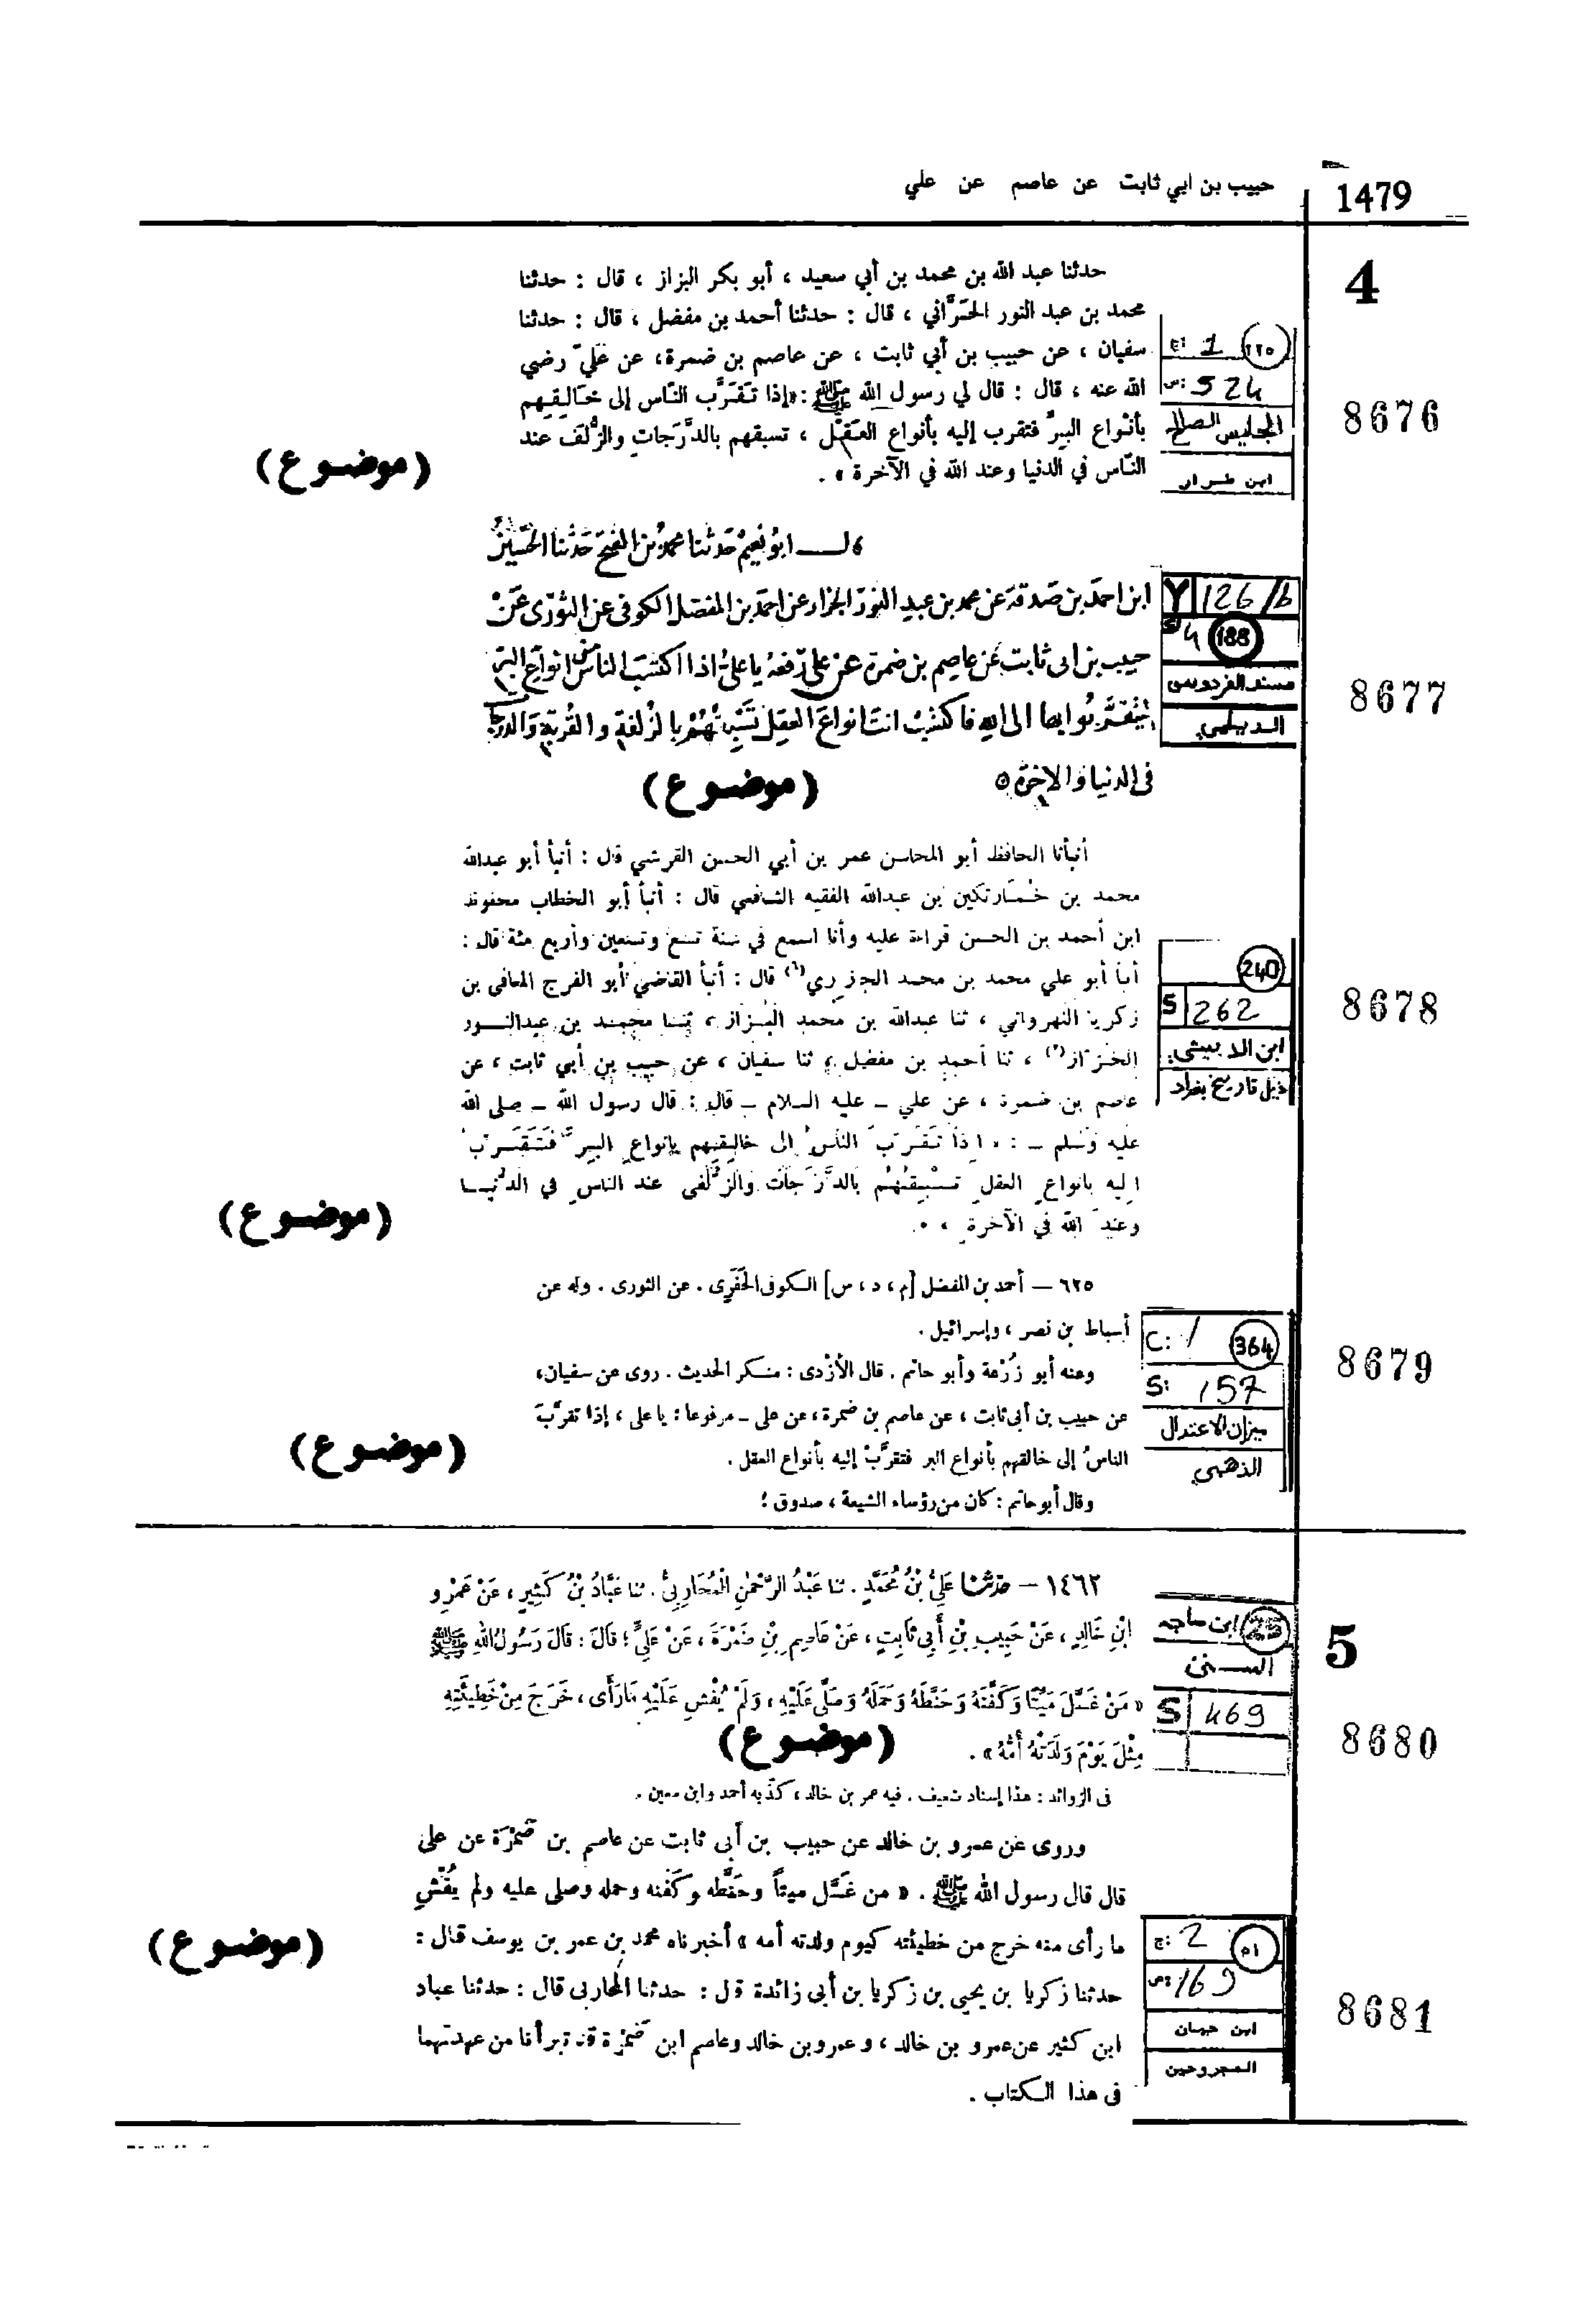 حبيب بن ابي ثابت عن عاصم عن علي
1479
4
حدثنا عبد الله بن محمد بن أبي سعيد ، أبو بكر البزاز ، قال : حدثنا
محمد بن عبد النور الحَرَّاني ، قال : حدثنا أحمد بن مفضل ، قال : حدثنا
سفيان ، عن حبيب بن أبي ثابت ، عن عاصم بن ضمرة، عن عَليّ رضي
الله عنه ، قال : قال لي رسول الله ﷺ : «إذا تَقَرَّب النّاس إلى خَالِقِهم
بأنواع البِرِّ فتقرب إليه بأنواع العَقْل ، تسبقهم بالدَّرَجات والزُّلَف عند
النّاس في الدنيا وعند الله في الآخرة » .
(موضوع)
ج: 1 ٢٢٥
ص: 524
الجليس الصالح
ابن طرار
8676
قال ابو نعيم حدثنا محمد بن الفتح حدثنا الحسين
ابن احمد بن صدقة عن محمد بن عبد النور الخزاز عن احمد بن المفضل الكوفى عن الثورى عن
حبيب بن ابى ثابت عن عاصم بن ضمرة عن على رفعه يا على اذا اكتسب الناس من انواع البر
ليتقربوا بها الى الله فاكتسب انت انواع العقل تسبقهم بالزلفة والقربة والدرجات
فى الدنيا والاخرة
(موضوع)
Y 126/b
S 4 188
مسند الفردوس
الديلمي
8677
أنبأنا الحافظ أبو المحاسن عمر بن أبي الحسن القرشي قال : أنبأ أبو عبدالله
محمد بن خُمارتكين بن عبدالله الفقيه الشافعي قال : أنبأ أبو الخطاب محفوظ
ابن أحمد بن الحسن قراءة عليه وأنا اسمع في سنة تسع وتسعين وأربع مئة قال :
أنبأ أبو علي محمد بن محمد الجازري(٦) قال : أنبأ القاضي أبو الفرج المعافى بن
زكريا النهرواني ، ثنا عبدالله بن محمد البزاز ، ثنا محمد بن عبدالنور
الخزاز(٧) ، ثنا أحمد بن مفضل ، ثنا سفيان ، عن حبيب بن أبي ثابت ، عن
عاصم بن ضمرة ، عن علي ـ عليه السلام ـ قال : قال رسول الله ـ صلى الله
عليه وسلم ـ : « اذا تَقَرَّبَ الناسُ الى خالِقِهم بأنواعِ البِرِّ فَتَقَرَّبْ
اليه بأنواعِ العقلِ تسْبِقْهُم بالدَّرَجات والزُلفى عند الناسِ في الدُنيا
وعندَ الله في الآخرةِ » .
(موضوع)
240
S 262
ابن الدبيثي
ذيل تاريخ بغداد
8678
٦٢٥ — أحمد بن المفضل [م ، د ، س] الكوفى الحَفَرِى . عن الثورى . وله عن
أسباط بن نصر ، وإسرائيل .
وعنه أبو زُرْعة وأبو حاتم . قال الأزْدى : منكر الحديث . روى عن سفيان،
عن حبيب بن أبى ثابت ، عن عاصم بن ضمرة ، عن على ــ مرفوعا : يا على ، إذا تقرَّبَ
الناسُ إلى خالقهم بأنواع البر فتقرَّبْ إليه بأنواع العقل .
وقال أبو حاتم : كان من رؤساء الشيعة ، صدوق ؛
(موضوع)
C: 1 364
S: 157
ميزان الاعتدال
الذهبي
8679
5
١٤٦٢ — حدثنا عَلِىُّ بْنُ مُحَمَّدٍ . ثنا عَبْدُ الرَّحْمٰنِ الْمُحَارِبِىُّ . ثنا عَبَّادُ بْنُ كَثِيرٍ ، عَنْ عَمْرِو
ابْنِ خَالِدٍ ، عَنْ حَبِيبِ بْنِ أَبِى ثَابِتٍ ، عَنْ عَاصِمِ بْنِ ضَمْرَةَ ، عَنْ عَلِىٍّ ؛ قَالَ : قَالَ رَسُولُ اللهِ ﷺ
« مَنْ غَسَّلَ مَيِّتًا وَكَفَّنَهُ وَحَنَّطَهُ وَحَمَلَهُ وَصَلَّى عَلَيْهِ ، وَلَمْ يُفْشِ عَلَيْهِ مَا رَأَى ، خَرَجَ مِنْ خَطِيئَتِهِ
مِثْلَ يَوْمَ وَلَدَتْهُ أُمُّهُ » .
(موضوع)
فى الزوائد : هذا إسناد ضعيف . فيه عمر بن خالد ، كذّبه أحمد وابن معين .
25 ابن ماجه
السنن
S 469
8680
وروى عن عمرو بن خالد عن حبيب بن أبى ثابت عن عاصم بن ضَمْرَة عن على
قال قال رسول الله ﷺ . « من غَسَّل ميتاً وحَنَّطه وكَفنه وحمله وصلى عليه ولم يُفْشِ
ما رأى منه خرج من خطيئته كيوم ولدته أمه » أخبرناه محمد بن عمر بن يوسف قال :
حدثنا زكريا بن يحيى بن زكريا بن أبى زائدة قال : حدثنا المحاربى قال : حدثنا عباد
ابن كثير عن عمرو بن خالد ، وعمرو بن خالد وعاصم ابن ضَمْرَة قد تبرأنا من عهدتهما
فى هذا الكتاب .
(موضوع)
ج: 2 ٥١
ص: 169
ابن حبان
المجروحين
8681